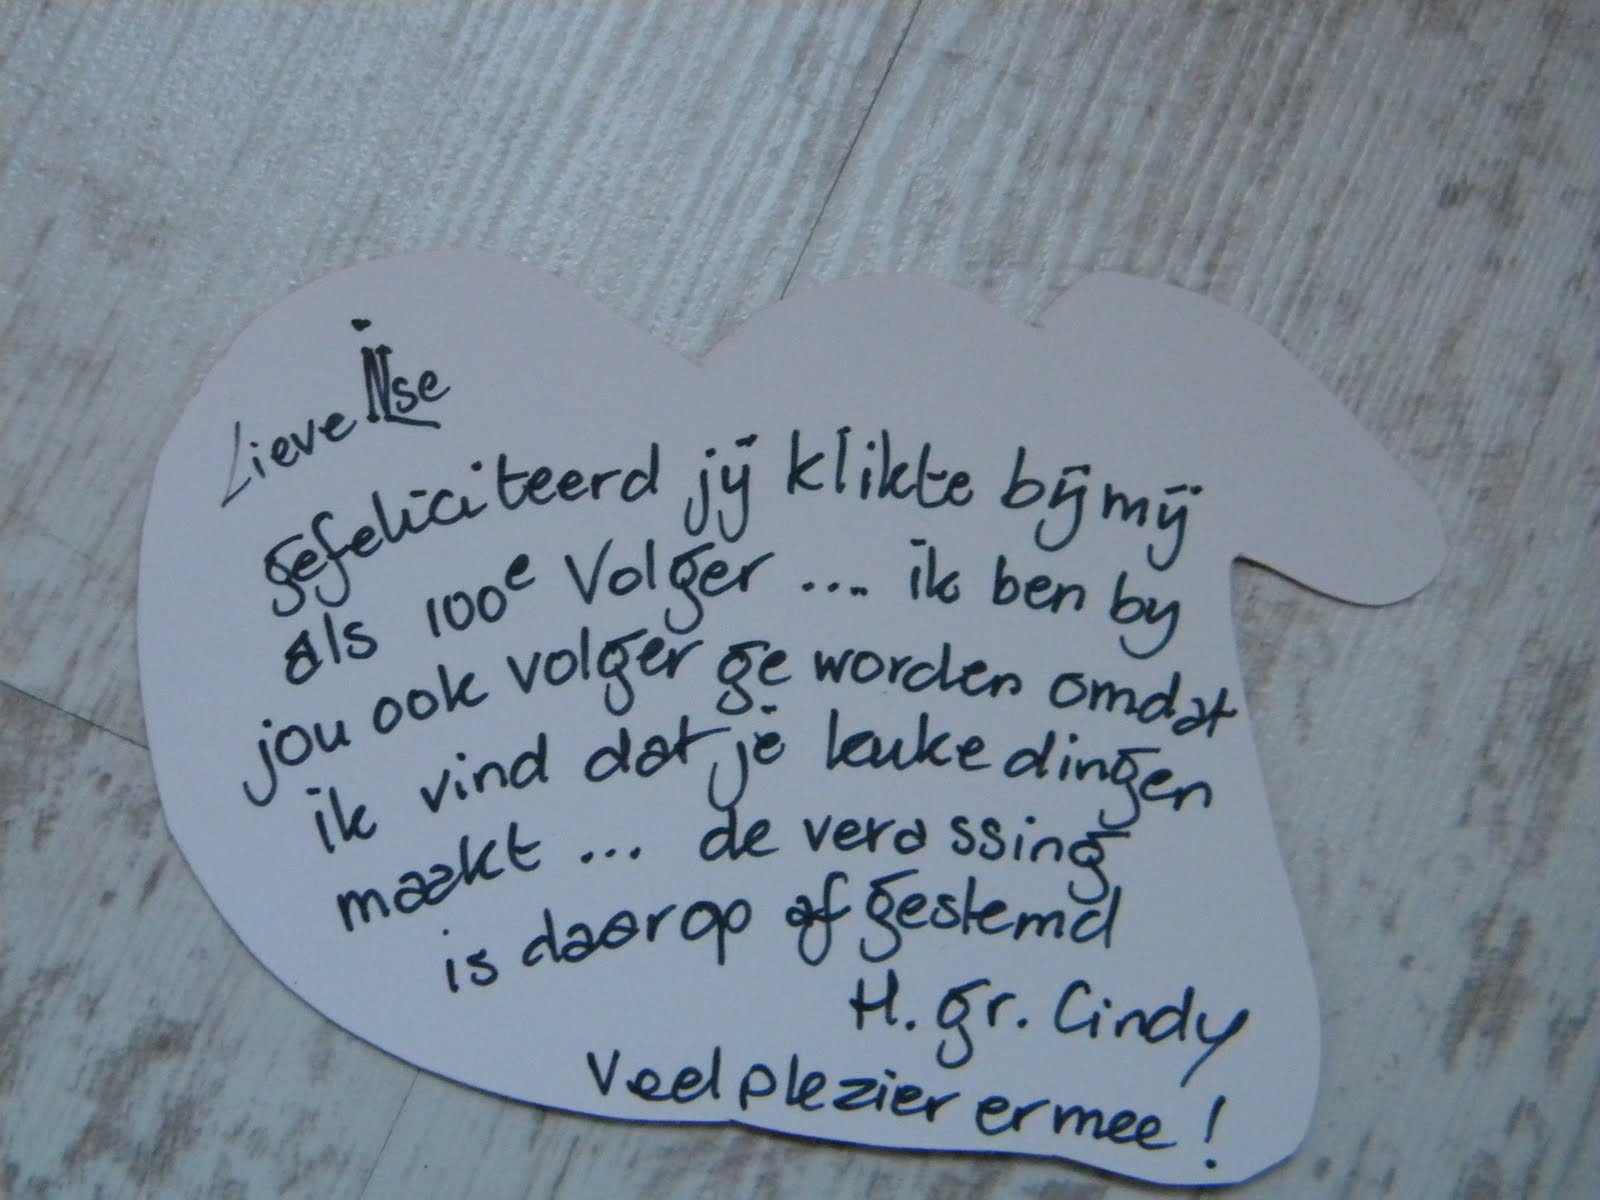 Lieve Ilse
gefeliciteerd jij klikte bij mij
als 100e Volger .... ik ben by
jou ook volger ge worden omdat
ik vind dat je leuke dingen
maakt ... de verassing
is daarop afgestemd
H. gr. Cindy
Veel plezier ermee!